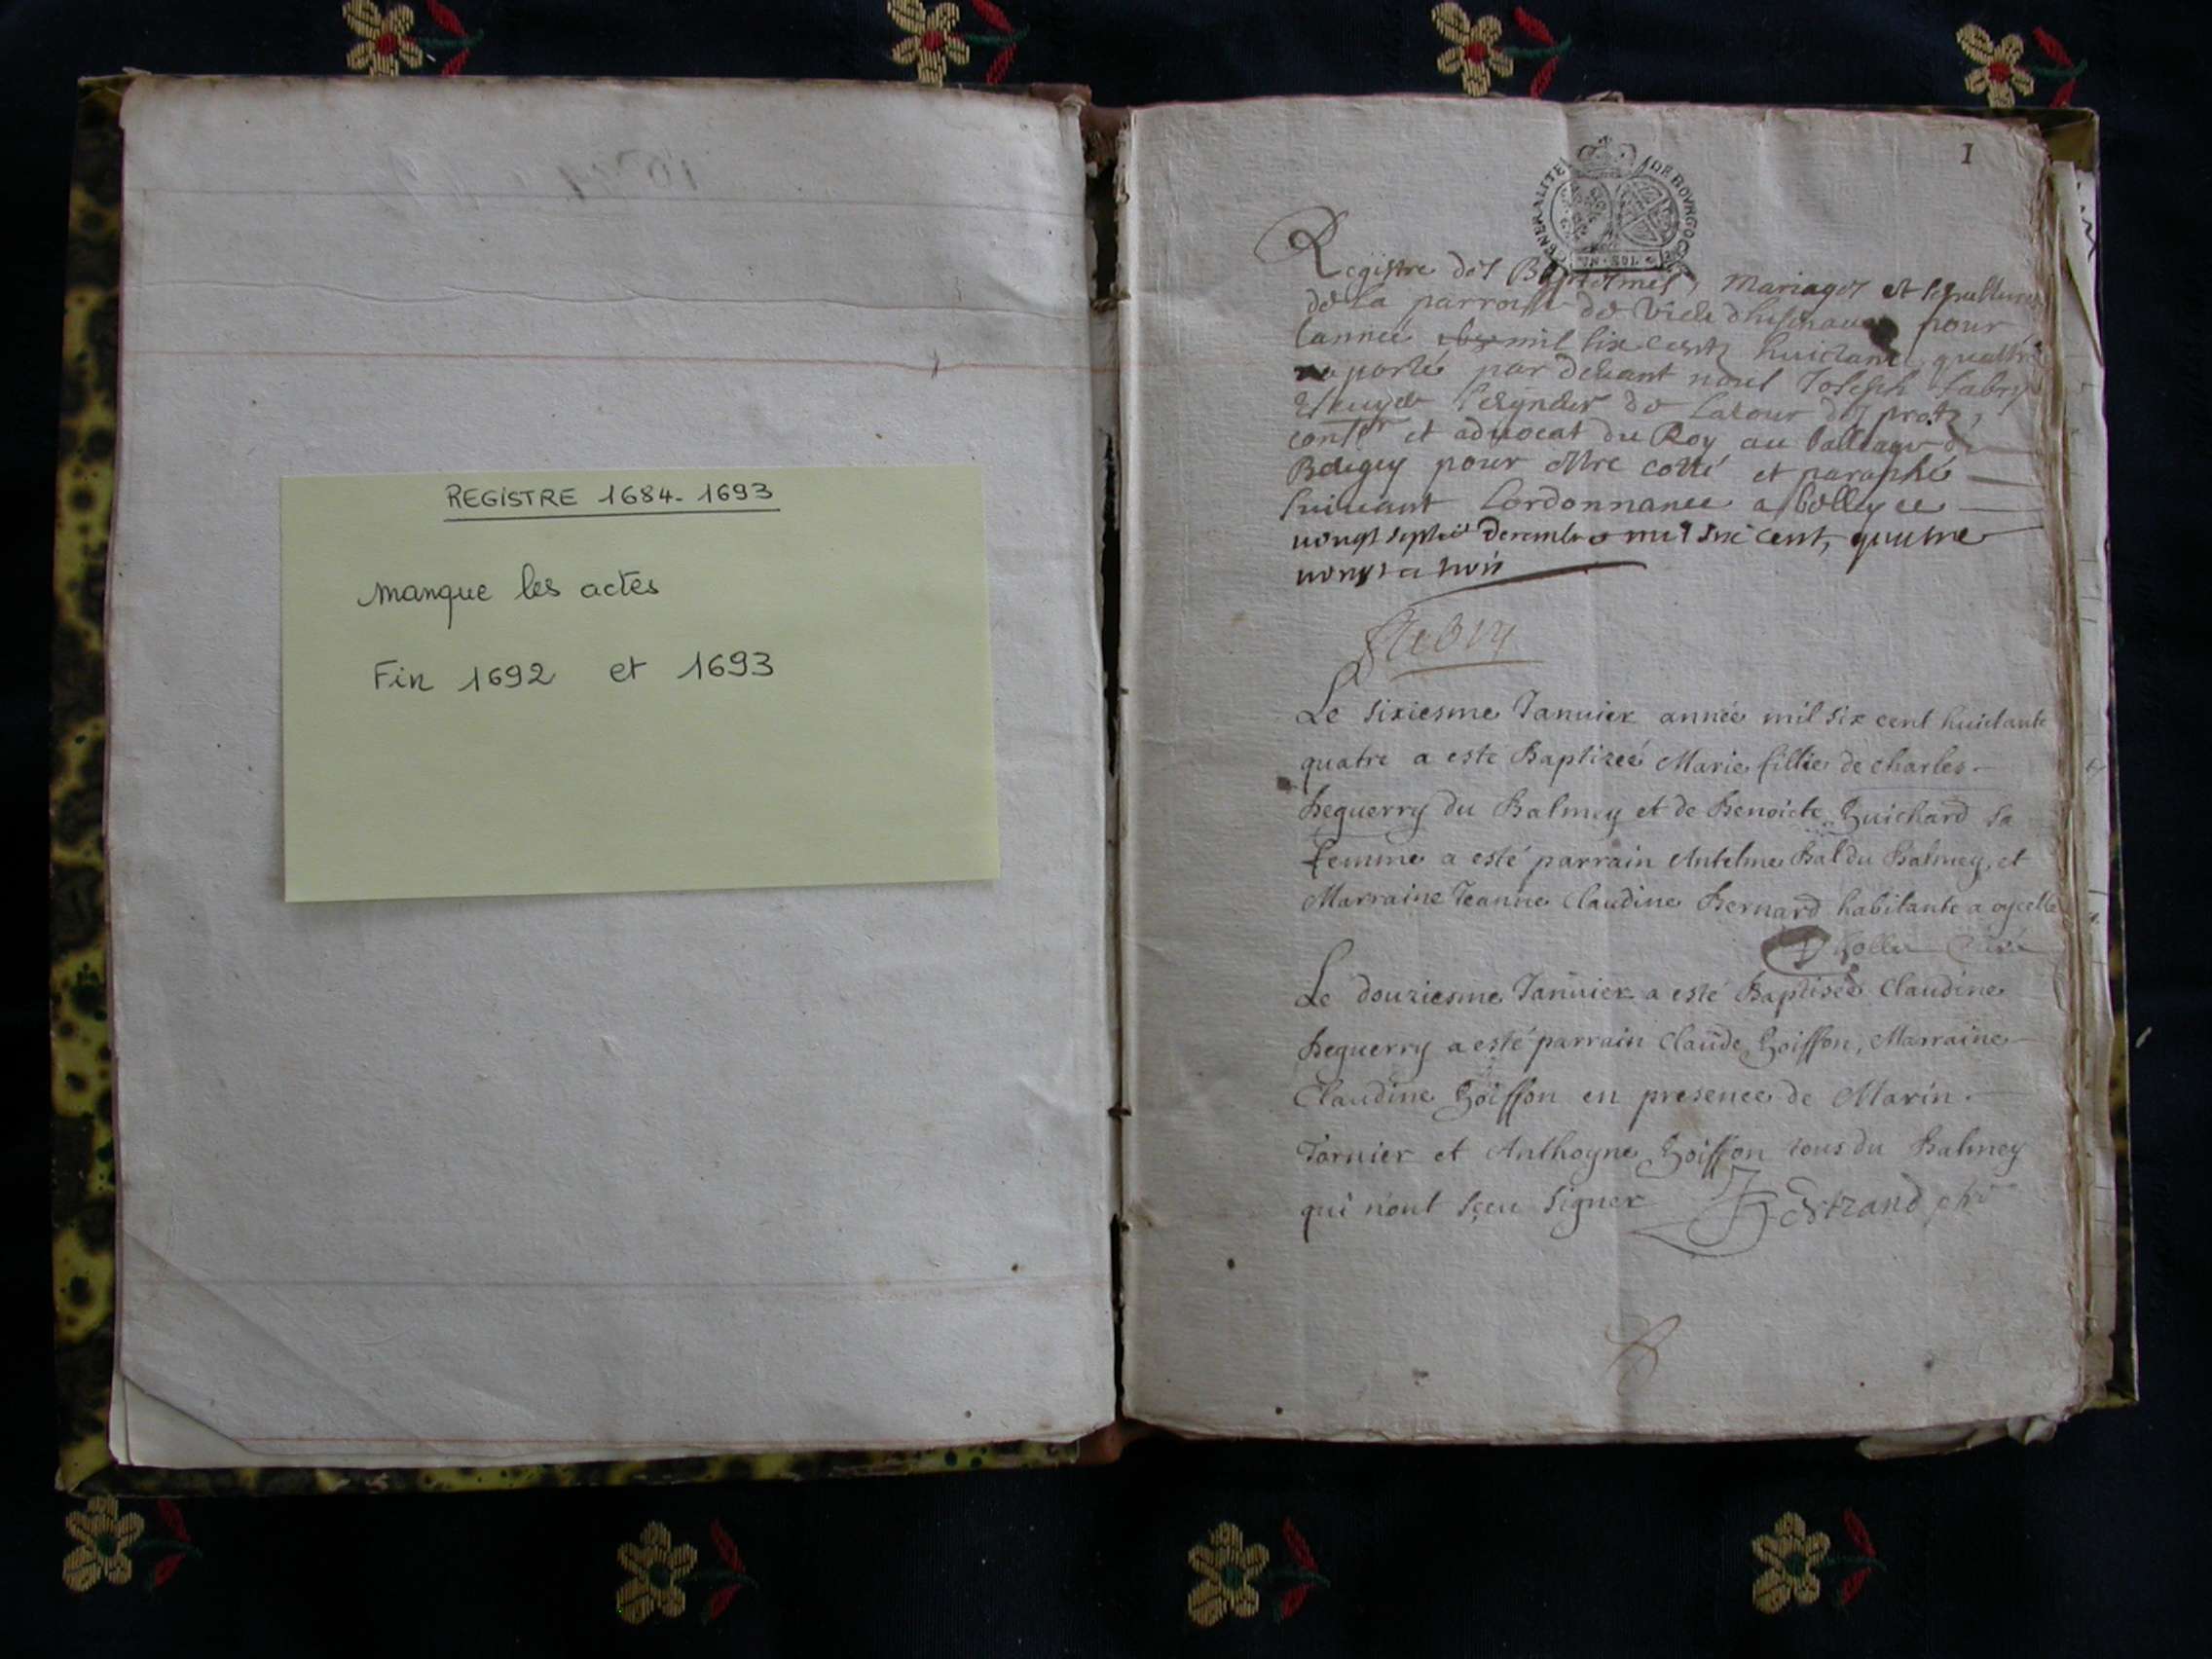 REGISTRE 1684-1693
manque les actes
Fin 1692 et 1693
1
GENERALITE DE BOURGOG
UN SOL
Registre des Baptesmes, mariages et sepultures
de la parroisse de pour
lannee mil six cents huictante quattre
par devant nous Joseph fabry
seigneur de
et advocat du Roy au balliage de
Beugey pour estre cotté et paraphé
suivant lordonnance a belley ce
vingt septie decembre mil six cent, quatre
vingt et trois
fabry
Le sixiesme Januier année mil six cent huictante
quatre a esté Baptizeé Marie fillie de charles
Beguerry du Balmey et de Benoicte Guichard sa
femme a esté parrain Antelme Bal du Balmey, et
Marraine Jeanne Claudine Bernard habitante a oycelle
Curé
Le douziesme Januier a esté Baptiseé Claudine
Beguerry a esté parrain Claude Goiffon, Marraine
Claudine Goiffon en presence de Marin
Tornier et Anthoyne Goiffon tous du Balmey
qui n'ont sçeu signer Bertrand